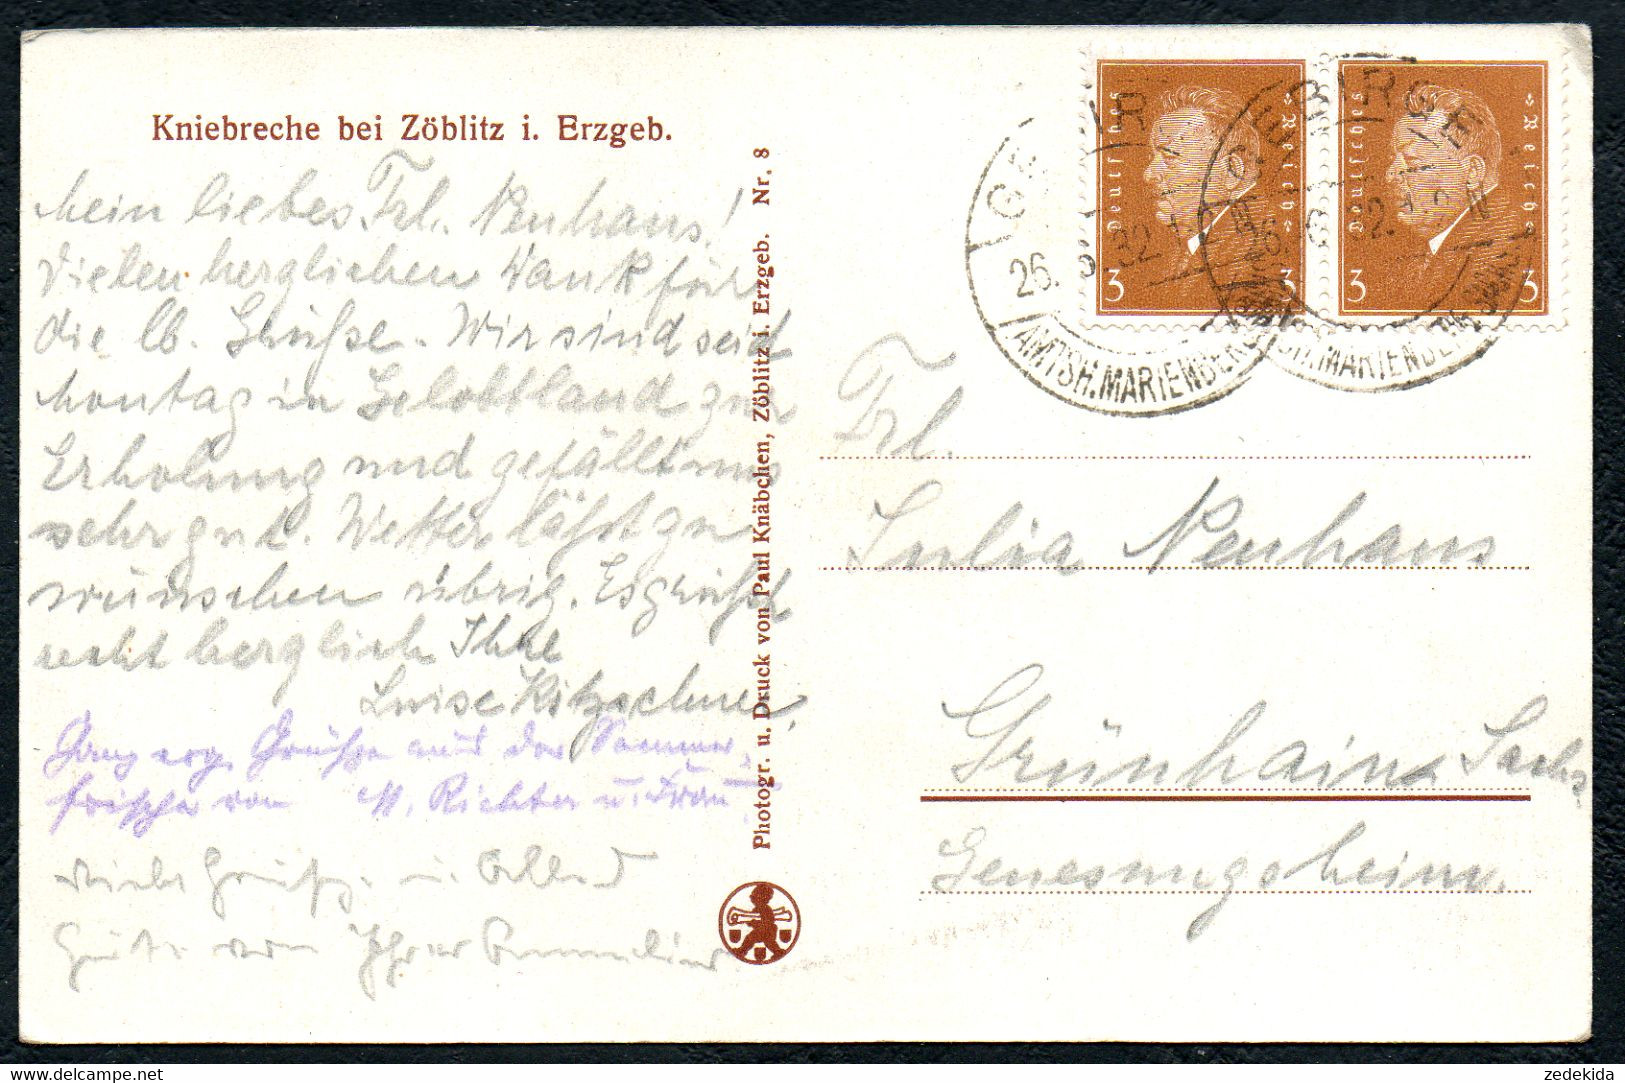 Kniebreche bei Zöblitz i. Erzgeb.
Mein liebes Frl. Neuhaus!
Vielen herzlichen Dank für
die lb. Grüsse. Wir sind seit
Montag in Gelobtland zur
Erholung und gefällt uns
sehr gut. Wetter läßt zu
wünschen übrig. Es grüsst
recht herzlich Ihre
Luise
Ganz erg. Grüsse aus der Sommer-
frische von M. Richter u. Frau
Grüße u. alles
Gute von Ihrer
Photogr. u. Druck von Paul Knäbchen, Zöblitz i. Erzgeb. Nr. 8
Deutsches Reich
3 3
Deutsches Reich
3 3
GEBIRGE
26. 32
AMTSH. MARIENBERG
AMTSH. MARIENBERG
Frl.
Julia Neuhaus
Grünhain Sachs.
Genesungsheim.
zedekida
delcampe.net